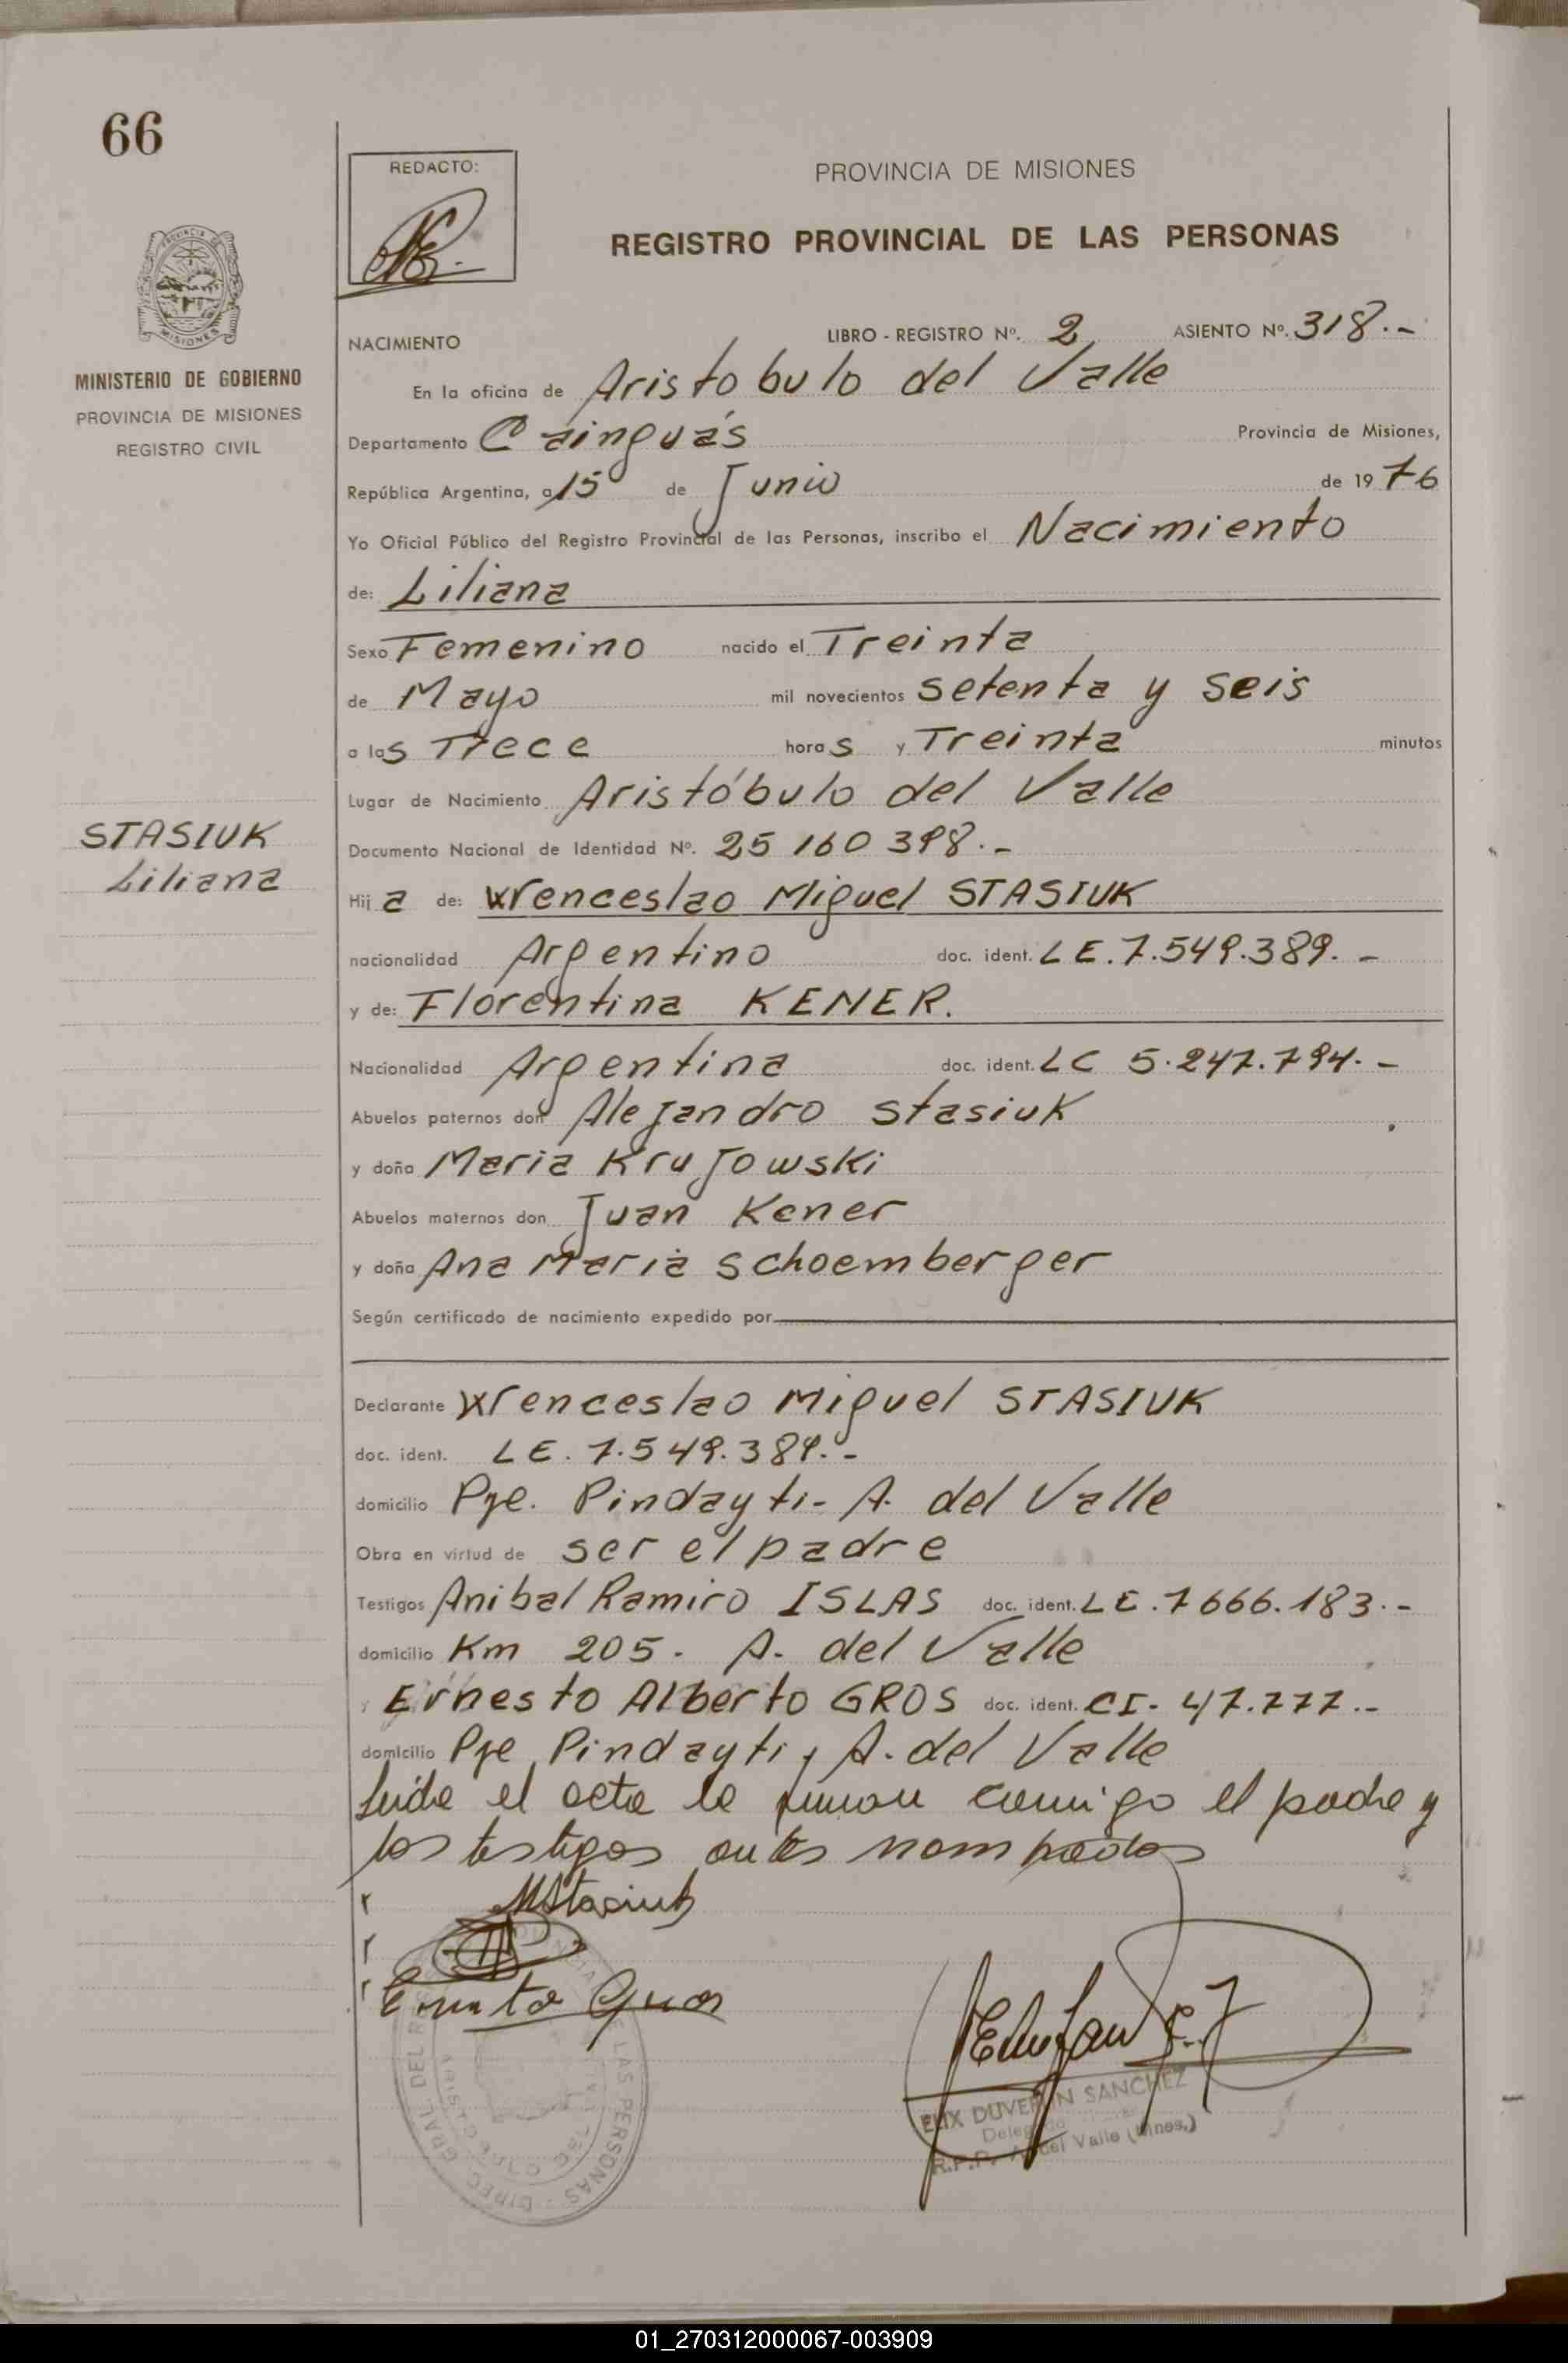 66
REDACTO:
PROVINCIA DE MISIONES
REGISTRO PROVINCIAL DE LAS PERSONAS
PROVINCIA DE
MISIONES
MINISTERIO DE GOBIERNO
PROVINCIA DE MISIONES
REGISTRO CIVIL
NACIMIENTO LIBRO - REGISTRO Nº. 2 ASIENTO Nº. 318.-
En la oficina de Aristobulo del Valle
Departamento Cainguás Provincia de Misiones,
República Argentina, a 15 de Junio de 1976
Yo Oficial Público del Registro Provincial de las Personas, inscribo el Nacimiento
de: Liliana
Sexo Femenino nacido el Treinta
de Mayo mil novecientos setenta y seis
a las Trece horas y Treinta minutos
Lugar de Nacimiento Aristóbulo del Valle
STASIUK
Liliana
Documento Nacional de Identidad Nº. 25 160 398.-
Hija de: Wenceslao Miguel STASIUK
nacionalidad Argentino doc. ident. LE. 7.549.389.-
y de: Florentina KENER.
Nacionalidad Argentina doc. ident. LC 5.247.794.-
Abuelos paternos don Alejandro Stasiuk
y doña Maria Krujowski
Abuelos maternos don Juan Kener
y doña Ana Maria Schoemberger
Según certificado de nacimiento expedido por
Declarante Wenceslao Miguel STASIUK
doc. ident. LE. 7.549.389.-
domicilio Pje. Pindayti- A. del Valle
Obra en virtud de ser el padre
Testigos Anibal Ramiro ISLAS doc. ident. LE. 7666.183.-
domicilio Km 205. A. del Valle
y Ernesto Alberto GROS doc. ident. CI- 47.777.-
domicilio Pje Pindayti, A. del Valle
Leida el acta la firman conmigo el padre y
los testigos antes nombrados
MStasiuk
Ernesto Gros
DUVERIN SANCHEZ
Delegado
R.P.P. A. del Valle (Mnes.)
DIREC. GRAL. DEL LAS PERSONAS
01_270312000067-003909